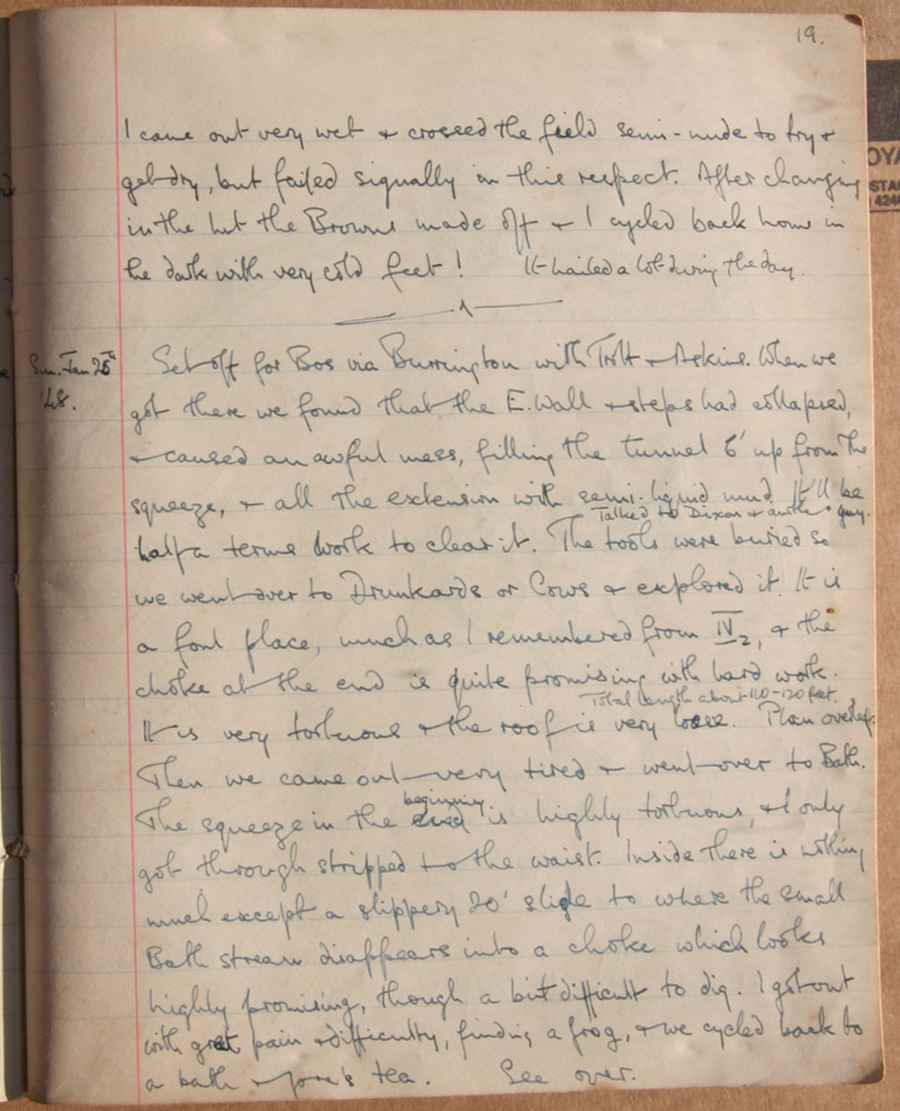 19.
I came out very wet & crossed the field semi-nude to try &
get dry, but failed signally in this respect. After changing
in the hut the Browns made off & I cycled back home in
the dark with very cold feet! It hailed a lot during the day.
Sun. Jan 25th
'48.
Set off for Bos via Burrington with Tratt & Askins. When we
got there we found that the E. Wall & steps had collapsed,
& caused an awful mess, filling the tunnel 6' up from the
squeeze, & all the extension with semi-liquid mud. It'll be
Talked to Dixon & another guy.
half a terms work to clear it. The tools were buried so
we went over to Drunkards or Cows & explored it. It is
a foul place, much as I remembered from IV2, & the
choke at the end is quite promising with hard work.
Total length about 110-120 feet.
It is very tortuous & the roof is very loose. Plan overleaf.
Then we came out very tired & went over to Bath.
beginning
The squeeze in the end is highly tortuous, & I only
got through stripped to the waist. Inside there is nothing
much except a slippery 20' slide to where the small
Bath stream disappears into a choke which looks
highly promising, though a bit difficult to dig. I got out
with great pain & difficulty, finding a frog, & we cycled back to
a bath & tea. See over.
OYA
STA
424